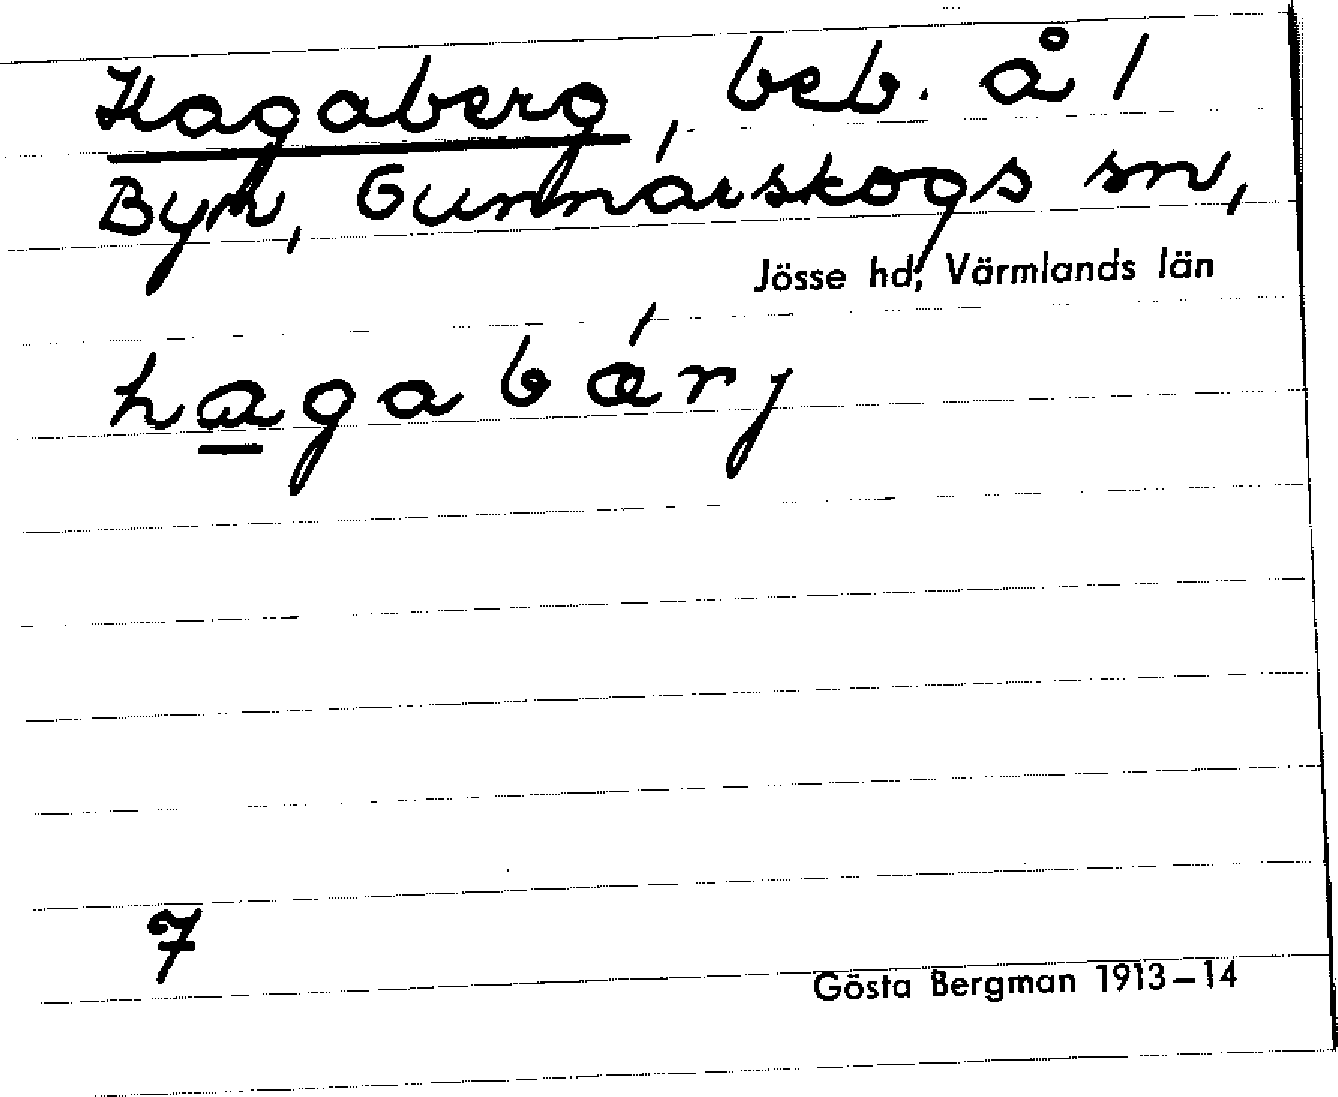 Hagaberg, beb. å 1
Byn, Gunnarskogs sn,
Jösse hd, Värmlands län
hagabǽrj
7
Gösta Bergman 1913–14